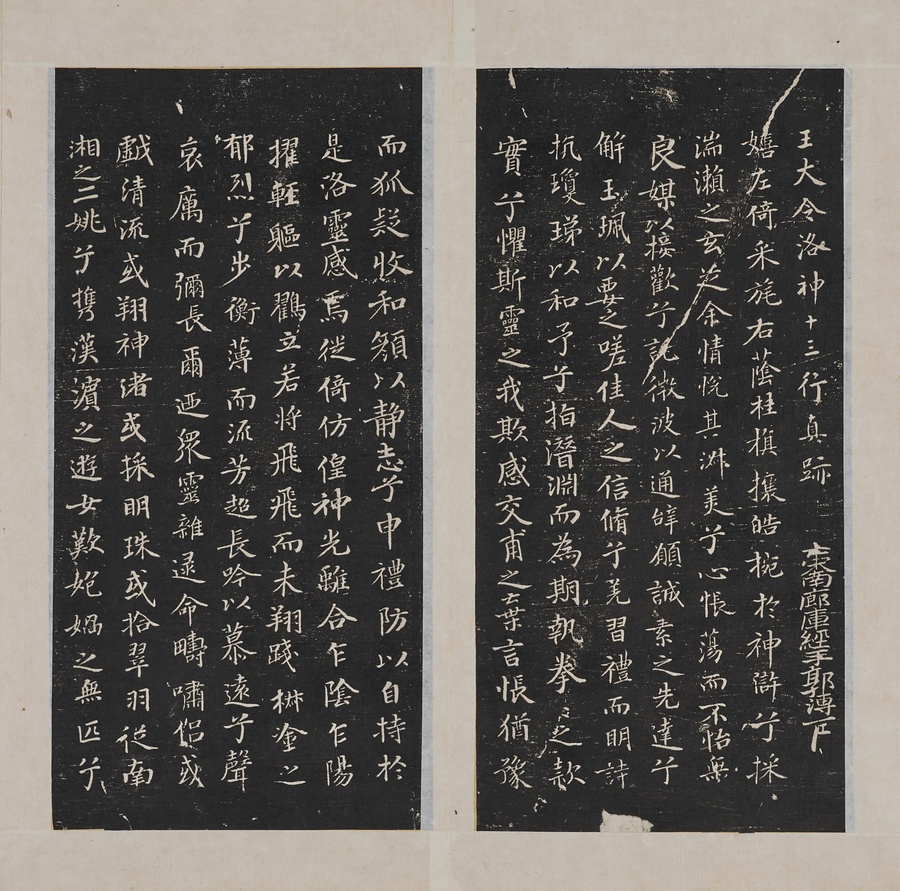 王大令洛神十三行真跡
南廊庫經手郭
嬉左倚采旄右蔭桂旗攘皓捥於神滸兮採
湍瀨之玄芝余情悅其淑美兮心悵蕩而不怡無
良媒以接歡兮託微波以通辭願誠素之先達兮
解玉珮以要之嗟佳人之信脩兮羌習禮而明詩
抗瓊珶以和予兮指潛淵而為期執拳〻之款
實兮懼斯靈之我欺感交甫之棄言悵猶豫
而狐疑收和顏以静志兮申禮防以自持於
是洛靈感焉徙倚仿偟神光離合乍陰乍陽
擢輕軀以鸛立若將飛飛而未翔踐椒塗之
郁烈兮步衡薄而流芳超長吟以慕遠兮聲
哀厲而彌長爾迺眾靈雜遝命疇嘯侶或
戲清流或翔神渚或採明珠或拾翠羽從南
湘之二姚兮攜漢濱之遊女歎媧之無匹兮